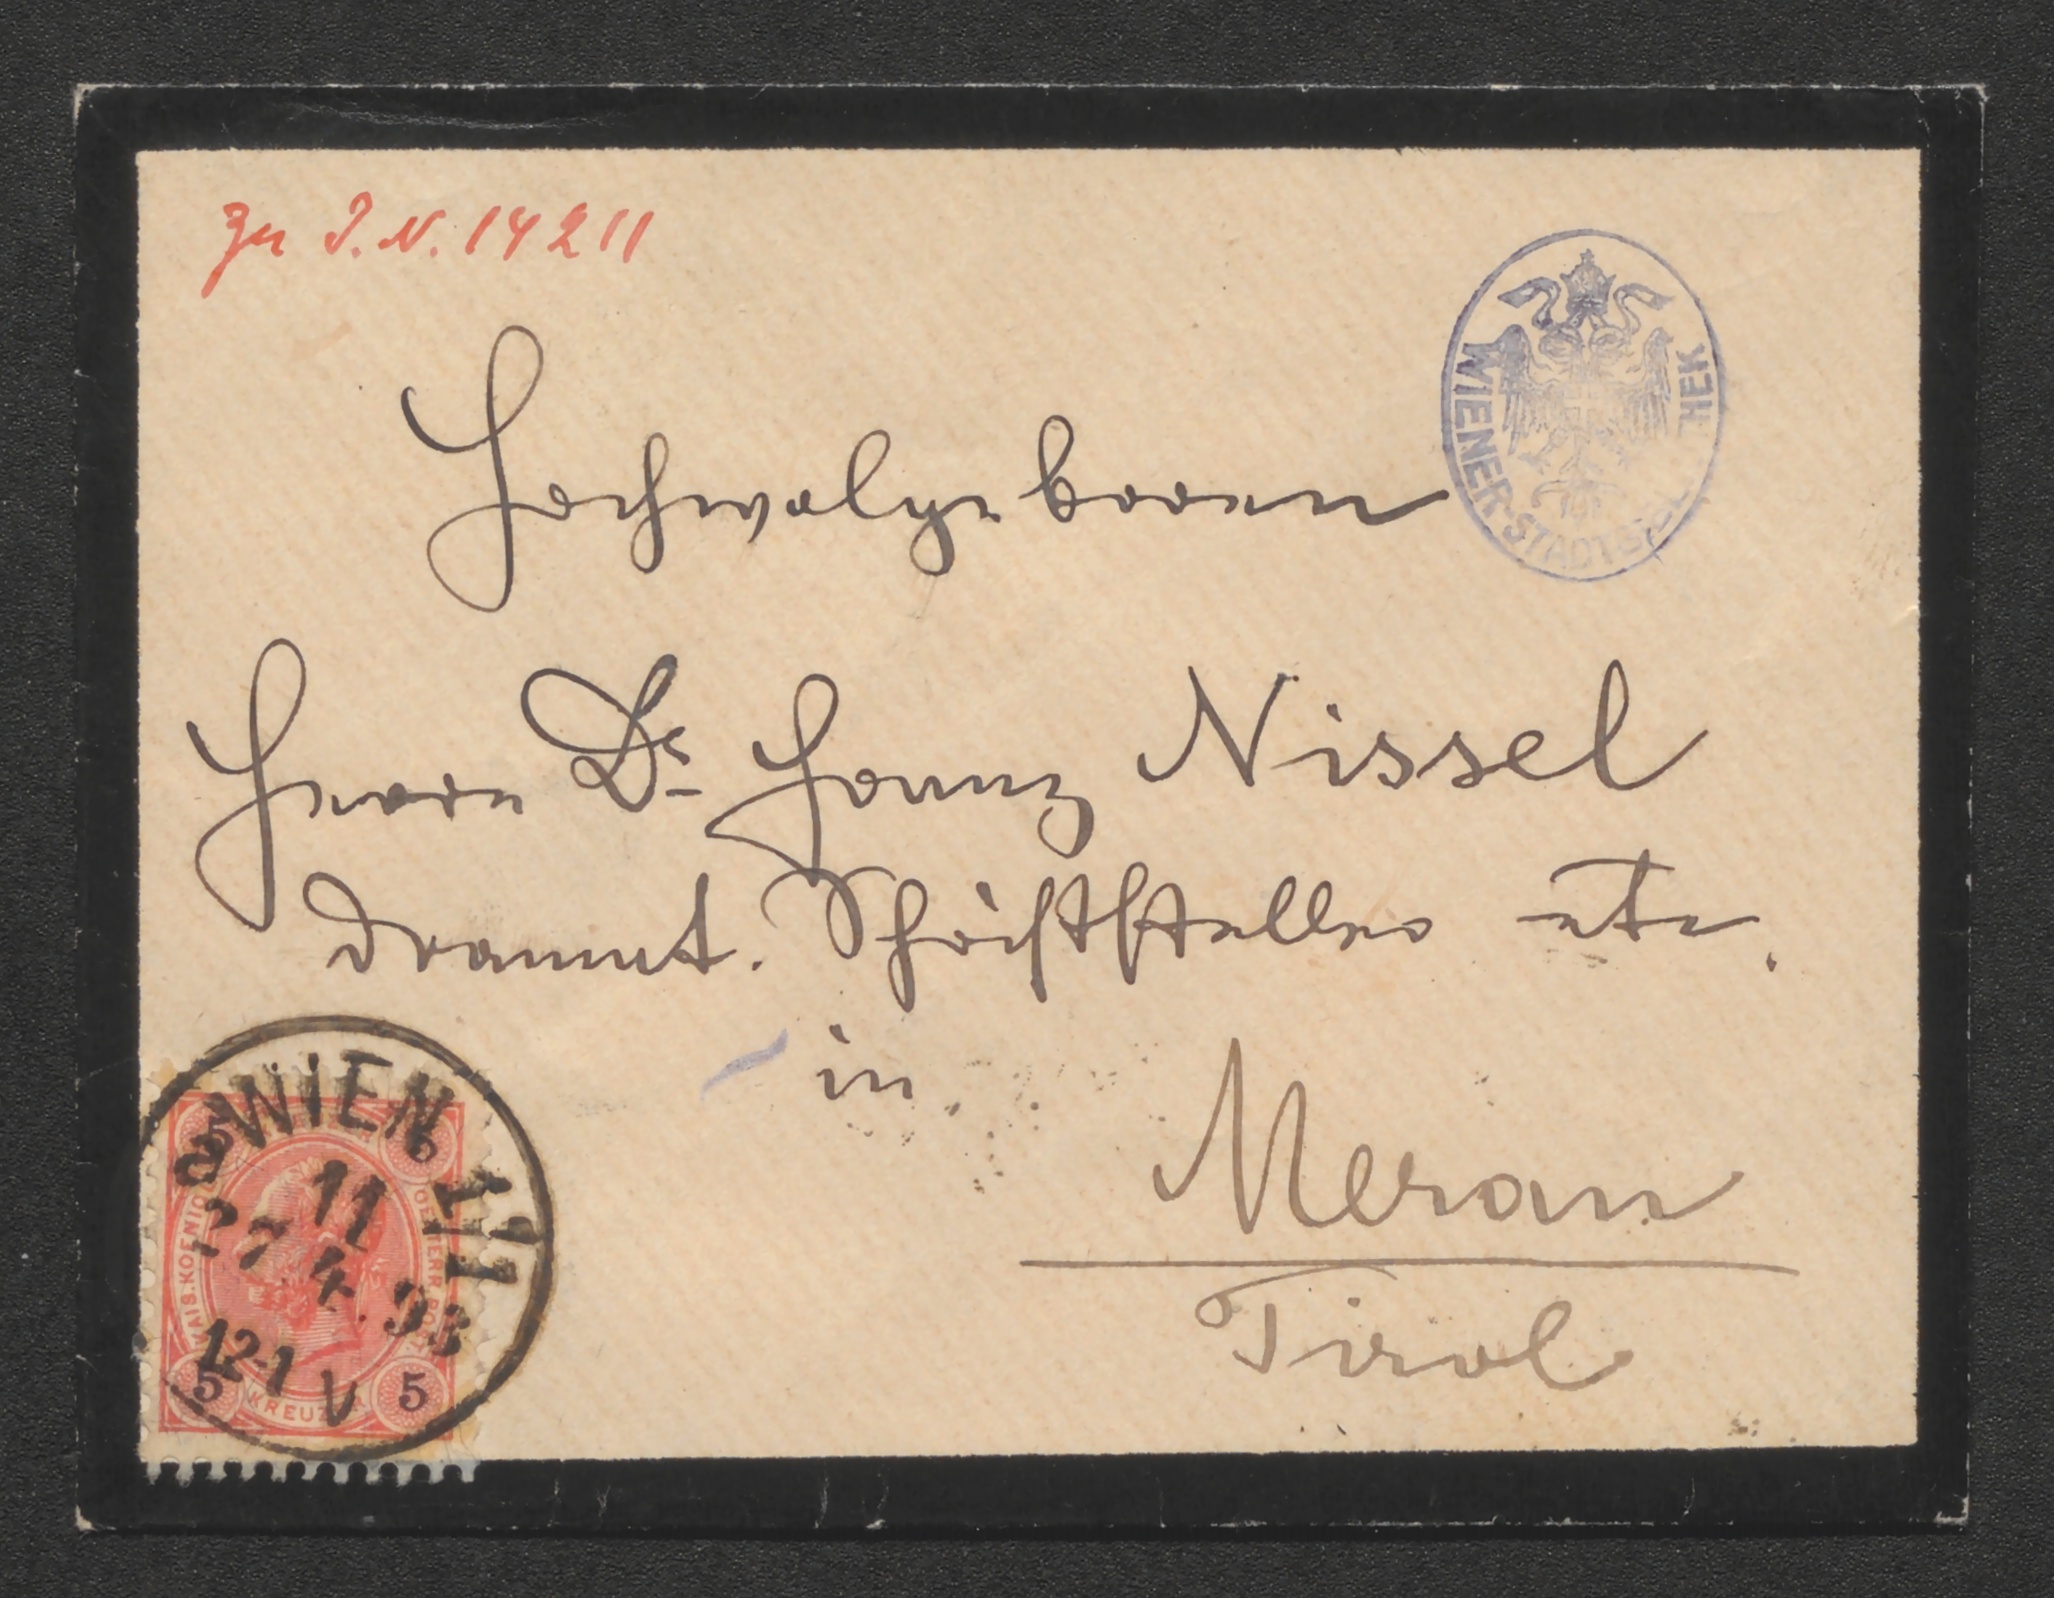 zu I. N. 14211
WIENER STADTB HEK
Hochwolgeboren
Herrn Dr Franz Nissel
dramat. Schriftsteller etc.
in
Meran
Tirol
WIEN 1/1
11
27.4.93
12-1 V
KAIS.KOENIGL OESTERR.POST
5 5
5 KREUZER 5